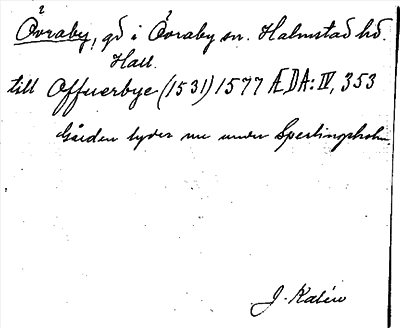 Övraby, gd i Övraby sn. Halmstad hd.
Hall.
till Offuerbye (1531) 1577 ÆDA: IV, 353
Gården lyder nu under Sperlingsholm.
J. Kalén